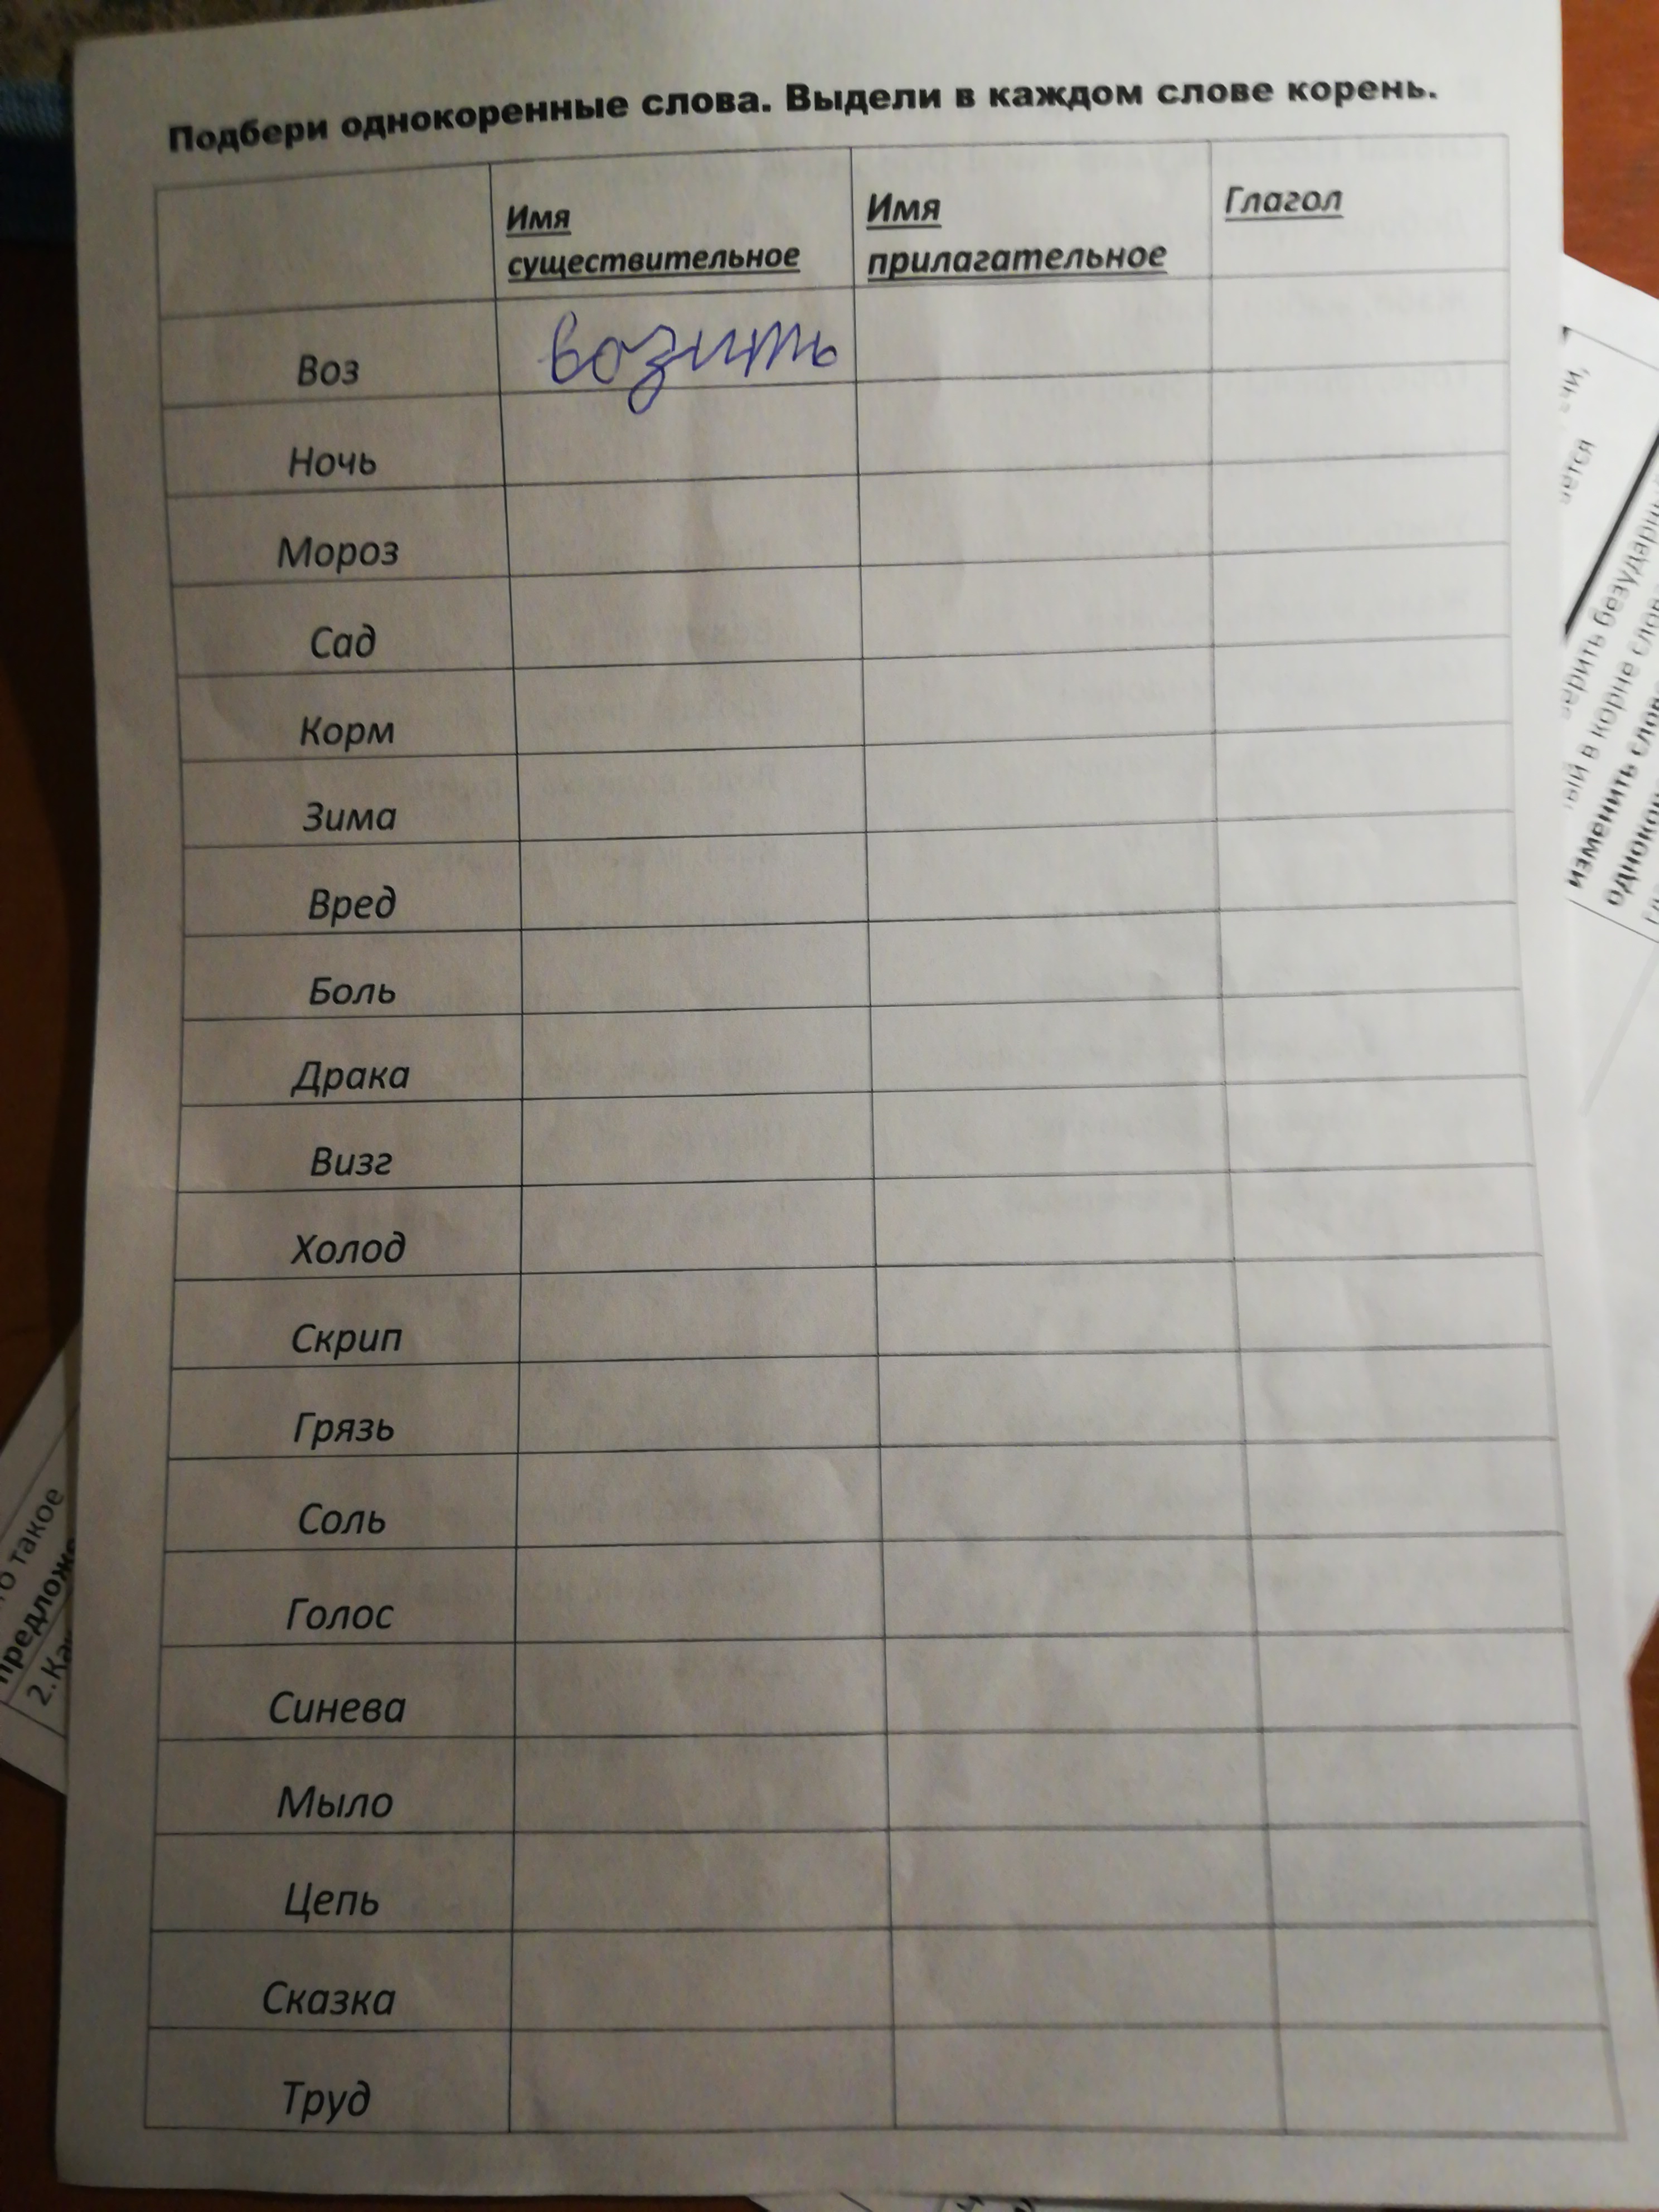 Подбери однокоренные слова. Выдели в каждом слове корень.
Имя существительное
Имя прилагательное
Глагол
Воз возить
Ночь
Мороз
Сад
Корм
Зима
Вред
Боль
Драка
Визг
Холод
Скрип
Грязь
Соль
Голос
Синева
Мыло
Цепь
Сказка
Труд
изменить
в корне
такое
2.